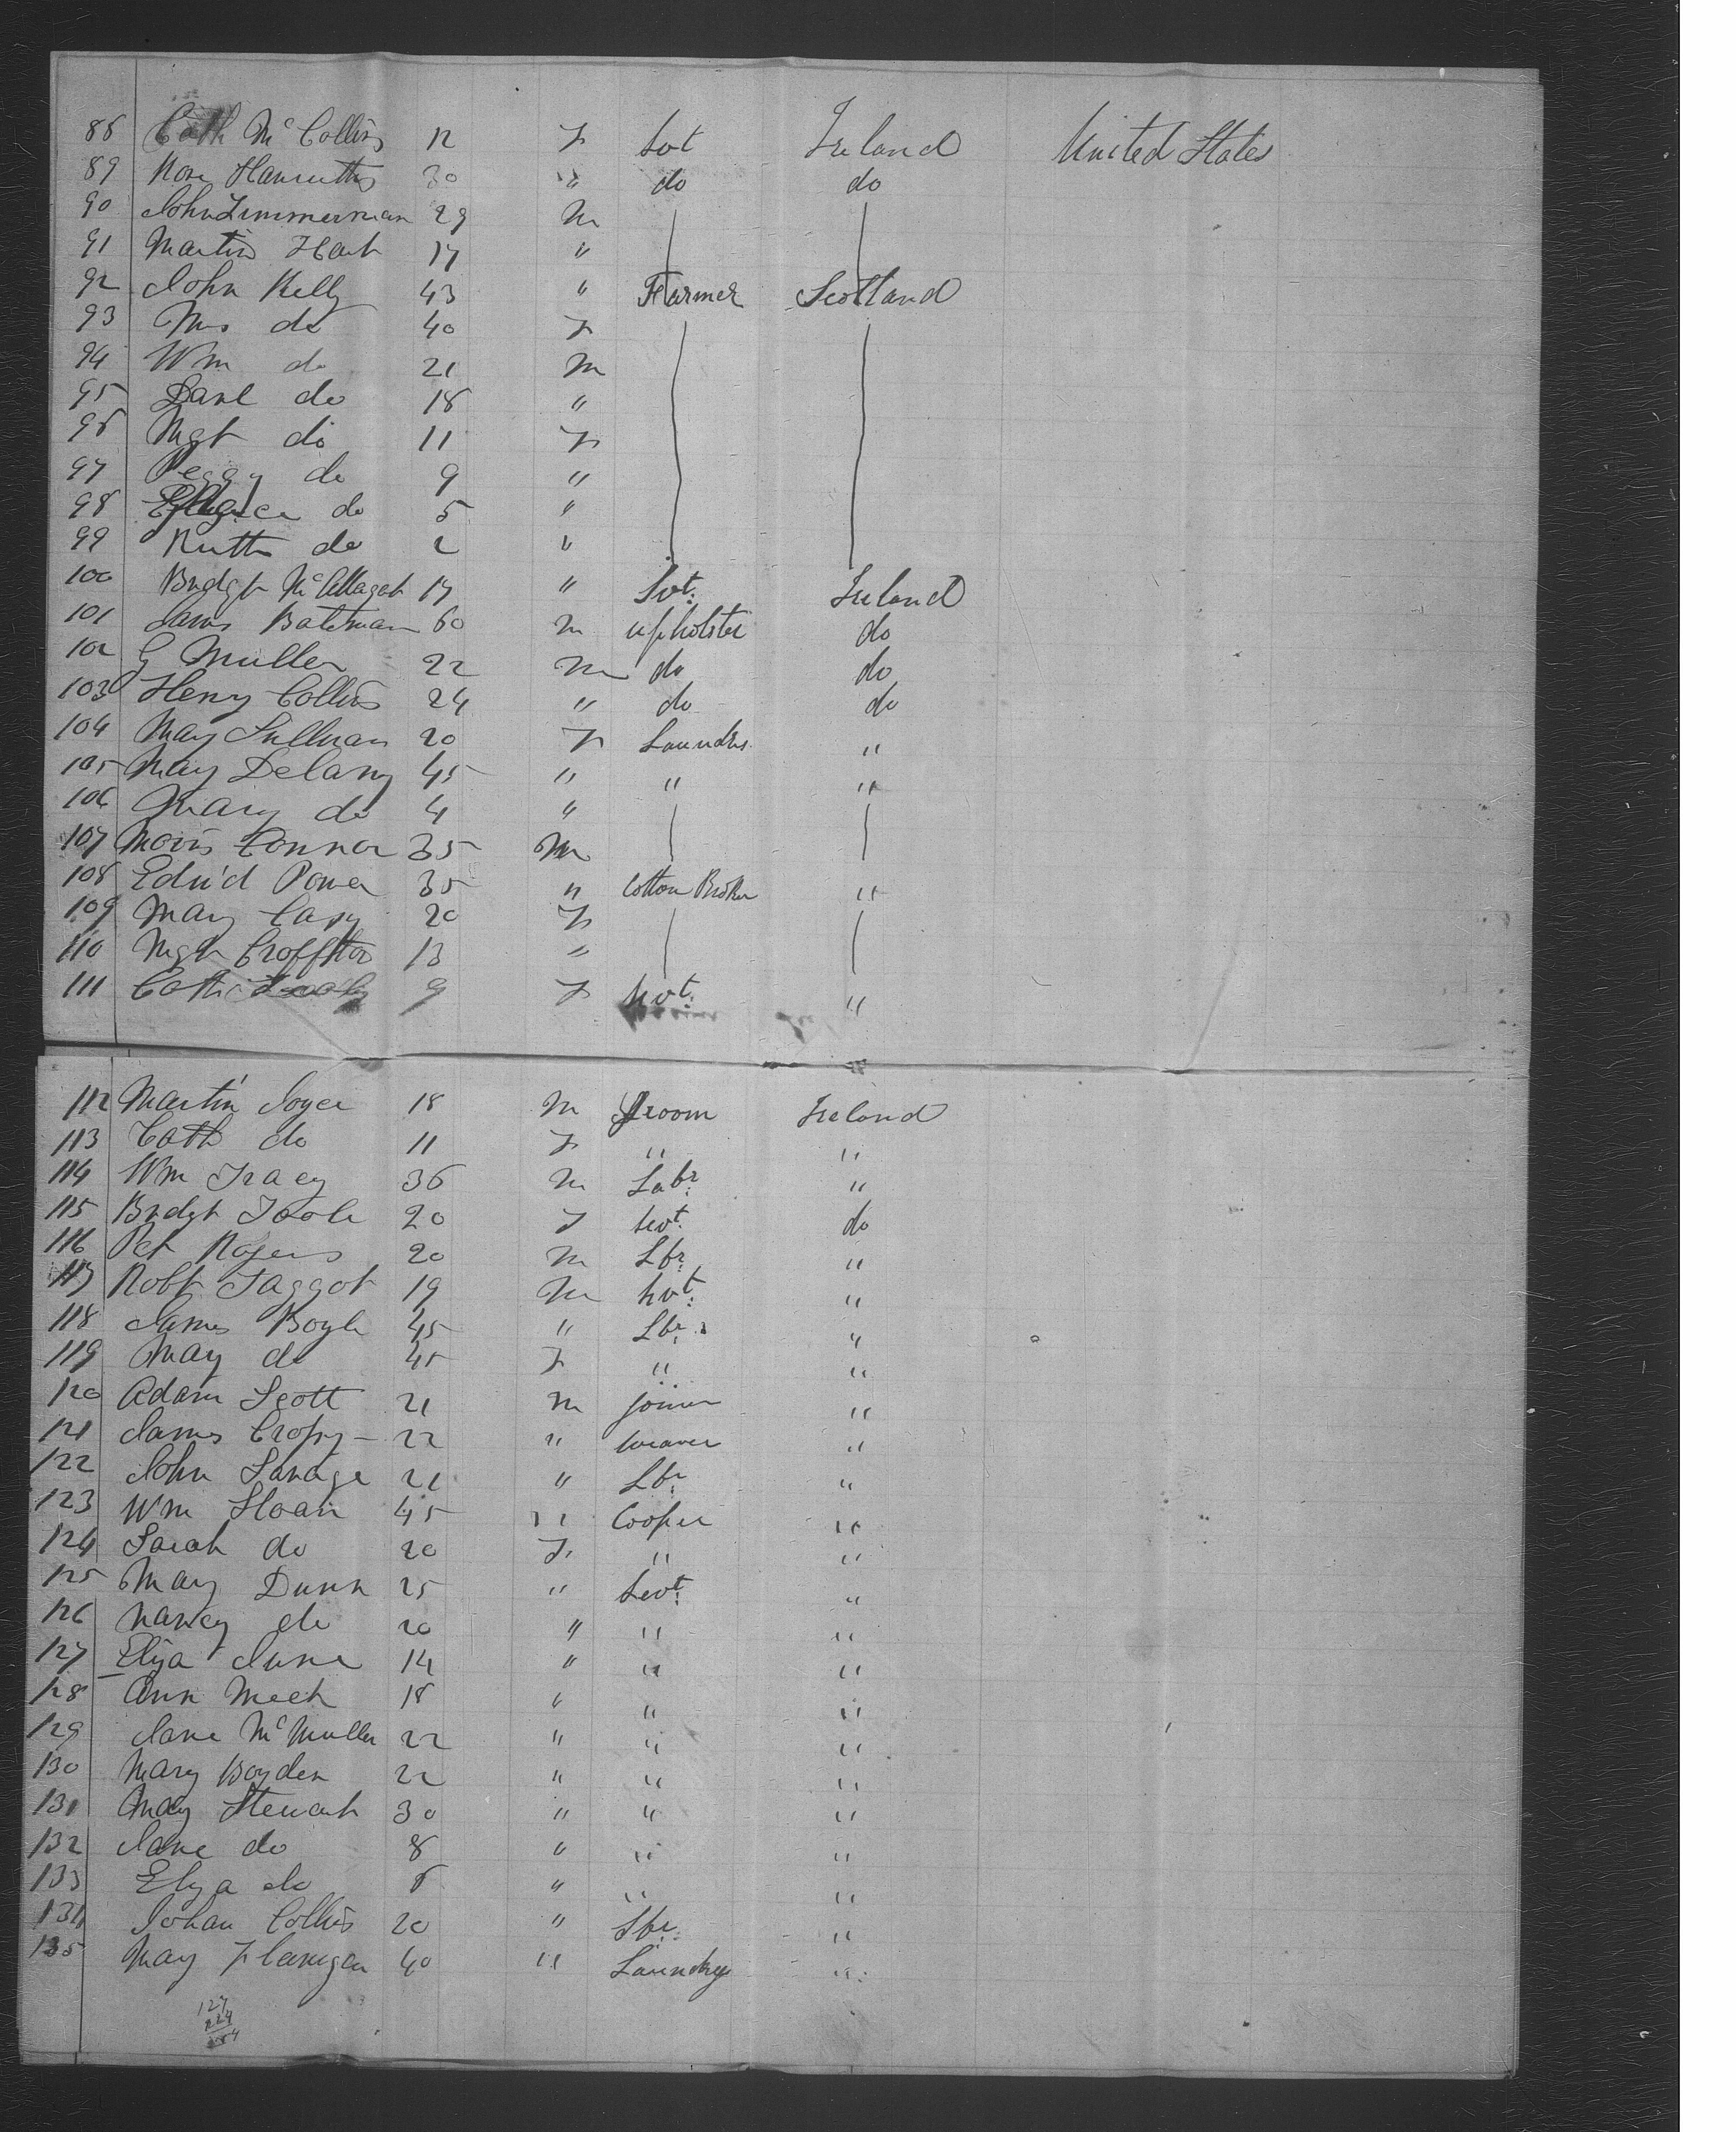 88 Cath McCollins 12 F Svt Ireland United States
89 Rose 30 " do do
90 John Zimmerman 29 M
91 Martin Hart 17 "
92 John Kelly 43 " Farmer Scotland
93 Mrs do 40 F
94 Wm do 21 M
95 Danl do 18 "
96 Mgt do 11 F
97 Peggy do 9 "
98 do 5 "
99 Ruth do 2 "
100 Bridgt 17 " Svt. Ireland
101 James Bateman 60 M upholster do
102 G Muller 22 M do do
103 Henry Collins 24 " do do
104 Mary Sullivan 20 F Laundrs "
105 Mary Delany 45 " " "
106 Mary do 4 "
107 Moris Connor 35 M
108 Edw'd Power 35 " Cotton Broker "
109 Mary Casey 20 F
110 Mgt Croffton 13 "
111 Cath 9 F Svt. "
112 Martin Joyce 18 M Groom Ireland
113 Cath do 11 F " "
114 Wm Tracy 36 M Labr "
115 Bridgt Toole 20 F Svt. do
116 Pat Rogers 20 M Lbr "
117 Robt Taggot 19 M Svt. "
118 James Boyle 45 " Lbr "
119 Mary do 45 F " "
120 Adam Scott 21 M joiner "
121 James 22 " weaver "
122 John Savage 21 " Lbr "
123 Wm Sloan 45 " Cooper "
124 Sarah do 20 F " "
125 Mary Dunn 25 " Sevt. "
126 Nancy do 20 " " "
127 Eliza June 14 " " "
128 Ann Meek 18 " " "
129 Jane McMullen 22 " " "
130 Mary Boyden 22 " " "
131 Mary Stewart 30 " " "
132 Jane do 8 " " "
133 Eliza do 6 " " "
134 Johan Collins 20 " Lbr "
135 Mary Flanigan 40 " Laundry "
127